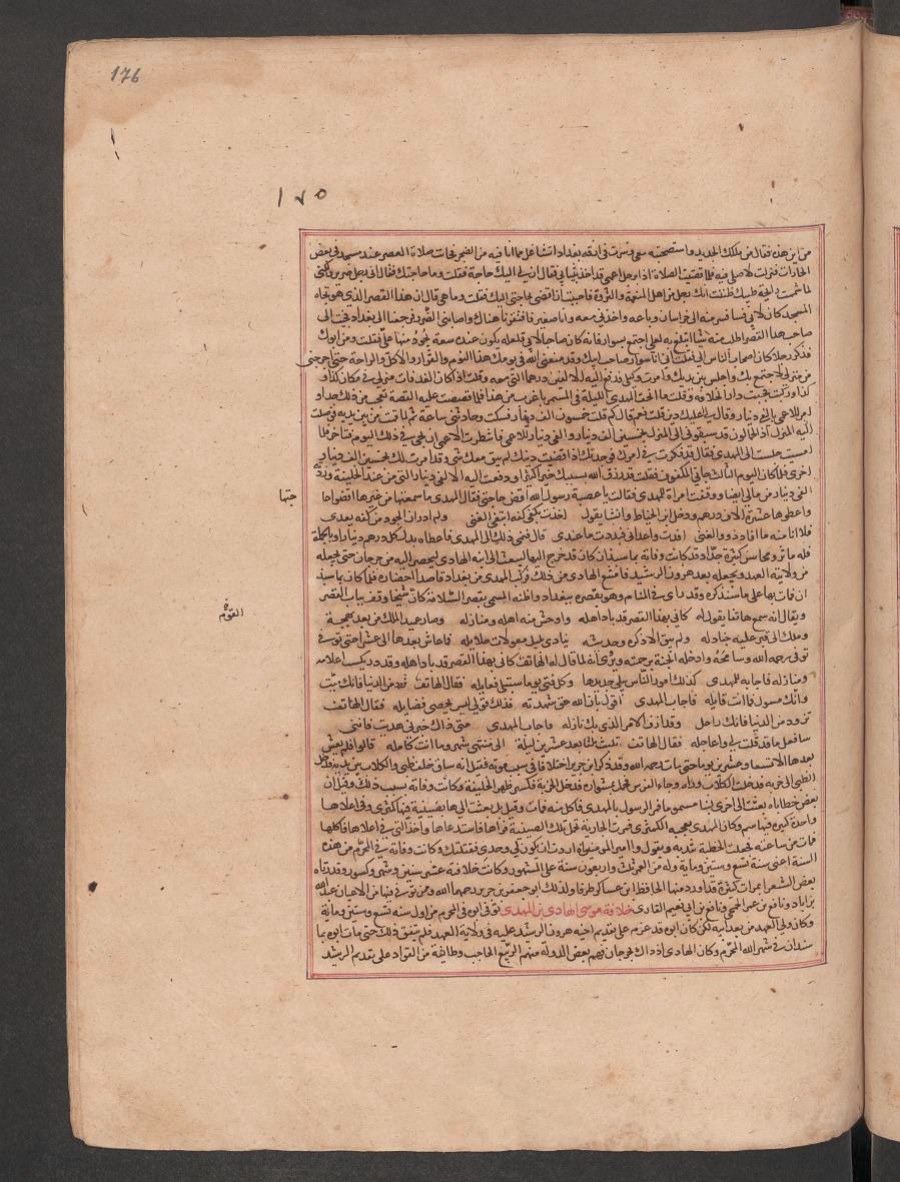 176
١٧٥
من اين هذه فقال من ملك الجديد واستصحبته معي وسرت في ازقة بغداد انشاغل مما انا فيه من الضجر فحانت صلاة العصر عند مسجد في بعض
الحارات فنزلت لاصلي فيه فلما قضيت الصلاة اذا برجل اعمى قد اخذ بثيابي فقال ان لي اليك حاجة فقلت وما حاجتك فقال اني رجل ضرير ولكنني
لما شممت رائحة طيبك ظننت انك رجل من اهل النعمة والثروة فاحببت ان افضي بحاجتي اليك فقلت وما هي قال ان هذا القصر الذي هو تجاه
المسجد كان لابي فسافر منه الى خراسان وباعه واخذني معه وانا صغير فافتقرنا هناك واصابني الضرر فرجعنا الى بغداد فجئت الى
صاحب هذا القصر اطلب منه شيئا اتبلغ به لعلي اجتمع بسوار فانه كان صاحبا لابي فلعله يكون عنده سعة يجود منها علي فقلت ومن ابوك
فذكر رجلا كان اصحب الناس الي فقلت اني انا سوار صاحب ابيك وقد منعني الله في يومك هذا النوم والقرار والاكل والراحة حتى اخرجني
من منزلي لاجتمع بك واجلس بين يديك وامرت وكيلي فدفع اليه الالفين درهما التي معه وقلت اذا كان الغد فات منزلي في مكان كذا و
كذا وركبت فجئت دار الخلافة وقلت ما اتحف المهدي الليلة في السمر باغرب من هذا فلما قصصت عليه القصة تعجب من ذلك جدا و
امر للاعمى بالفي دينار وقال لي عليك دين قلت نعم قال كم قلت خمسون الف دينار فسكت وحادثني ساعة ثم لما قمت من بين يديه فوصلت
اليه المنزل اذا الحمالون قد سبقوني الى المنزل بخمسين الف دينار والفي دينار للاعمى فانتظرت الاعمى ان يجي في ذلك اليوم فتاخر فلما
امسيت جلست الى المهدي فقال قد فكرت في امرك فوجدتك اذا قضيت دينك لم يبق معك شي وقد امرت لك بخمسين الف دينار
اخرى فلما كان اليوم الثالث جاني المكفوف فقلت قد رزق الله بسببك خيرا كثيرا ودفعت اليه الالفي دينار التي من عند الخليفة وزدته
الفي دينار من مالي ايضا ووقفت امراة للمهدي فقالت يا عصبة رسول الله اقض حاجتي فقال المهدي ما سمعتها من غيرها اقضوا حا
جتها
واعطوها عشرة الاف درهم ودخل ابن الخياط وانشا يقول اخذت بكفي كفه ابتغي الغنى ولم ادر ان الجود من كفه يعدي
فلا انا منه ما افاد ذوو الغنى افدت واعداني فبددت ما عندي قال فنمى ذلك الى المهدي فاعطاه بدل كل درهم دينارا وبالجملة
فله ماثر ومحاسن كثيرة جدا وقد كانت وفاته بماسبذان كان قد خرج اليها ليبعث الى ابنه الهادي ليحضر اليه من جرجان حتى يخلعه
من ولاية العهد ويجعله بعد هرون الرشيد فامتنع الهادي من ذلك فركب المهدي من بغداد قاصدا احضاره فلما كان بماسبذ
ان مات بها على ما سنذكره وقد راى في المنام وهو بقصره ببغداد واظنه المسمى بقصر السلامة كان شيخا وقف بباب القصر
ويقال انه سمع هاتفا يقول له كاني بهذا القصر قد باد اهله واوحش منه اهله ومنازله وصار عميد الملك من بعد بهجة
القوم
وملك الى قبر عليه جنادله ولم يبق الا ذكره وحديثه ينادي بليل معولات حلايله فما عاش بعدها الا عشرا حتى توفي
توفي رحمه الله وسامحه وادخله الجنة برحمته ويروى انه لما قال له الهاتف كاني بهذا القصر قد باد اهله وقد درست اعلامه
ومنازله فاجابه المهدي كذلك امور الناس يبلى جديدها وكل فتى يوما ستبلى فعايله فقال الهاتف تزود من الدنيا فانك ميت
وانك مسول فما انت قايله فاجاب المهدي اقول بان الله حق شهدته فذلك قولي ليس تحصى فضايله فقال الهاتف
تزود من الدنيا فانك راحل وقد ازف الامر الذي بك نازله فاجاب المهدي متى ذاك خبرني هديت فانني
سافعل ما قد قلت لي واعاجله فقال الهاتف تلبث ثلاثا بعد عشرين ليلة الى منتهى شهر وما انت كامله قالوا فلم يعش
بعدها الا تسعا وعشرين يوما حتى مات رحمه الله وقد ذكر ابن جرير اختلافا في سبب موته فقيل انه ساق خلف ظبي والكلاب بين يديه فدخل
الظبي الى خربة فدخلت الكلاب وراه وجاء الفرس فحمل بمشواره فدخل الخربة فكسر ظهر الخليفة وكانت وفاته بسبب ذلك وقيل ان
بعض حظاياه بعثت الى اخرى لبنا مسموما فمر الرسول بالمهدي فاكل منه فمات وقيل بل بعثت اليها بصينية فيها كمثرى وفي اعلاها
واحدة كبيرة فيها سم وكان المهدي يعجبه الكمثرى فمرت الجارية تحمل تلك الصينية فراها فاستدعاها واخذ التي في اعلاها فاكلها
فمات من ساعته فجعلت الحظية تندبه وتقول وا امير المومنيناه اردت ان يكون لي وحدي فقتلتك وكانت وفاته في المحرم من هذه
السنة اعني سنة تسع وستين وماية وله من العمر ثلاث واربعون سنة على المشهور وكانت خلافته عشر سنين وشهر وكسور وقد رثاه
بعض الشعراء بمراث كثيرة قد اورد منها الحافظ ابن عساكر طرفا ولذلك ابو جعفر بن جرير رحمهما الله وممن توفي فيها من الاعيان عبيد الله
بن اياد ونافع بن عمر الجمحي ونافع بن ابي نعيم القاري خلافة موسى الهادي بن المهدي توفي ابوه في المحرم من اول سنة تسع وستين وماية
وكان ولي العهد من بعد ابيه لكن كان ابوه قد عزم على تقديم اخيه هرون الرشيد عليه في ولاية العهد فلم يتفق ذلك حتى مات ابوه بما
سبذان في شهر الله المحرم وكان الهادي اذ ذاك بجرجان فهم بعض الدولة منهم الربيع الحاجب وطائفة من القواد على تقديم الرشيد